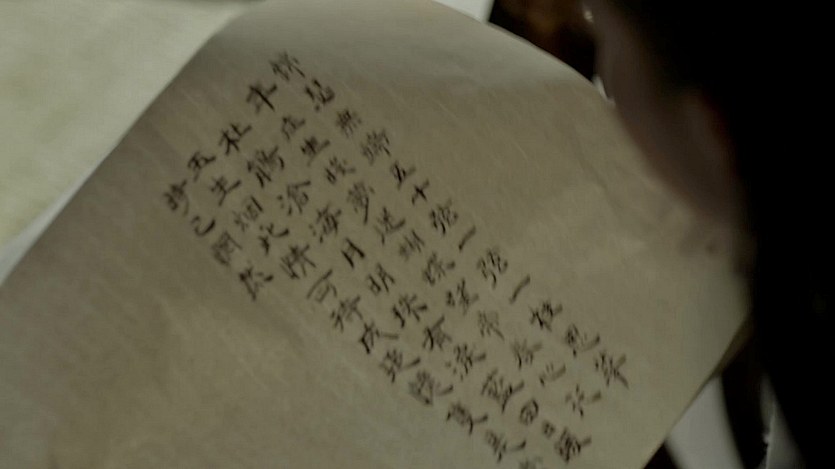 錦瑟無端五十弦一弦一柱思華
年庄生晓夢迷蝴蝶望帝春心托
杜鵑滄海月明珠有淚藍田日暖
玉生烟此情可待成追憶是
時已惘然